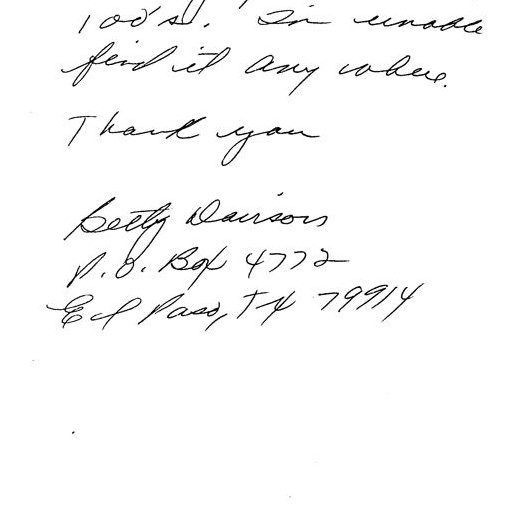 100's. I'm unable
find it any where.
Thank you
Betty Davison
P.O. Box 4772
El Paso, TX 79914